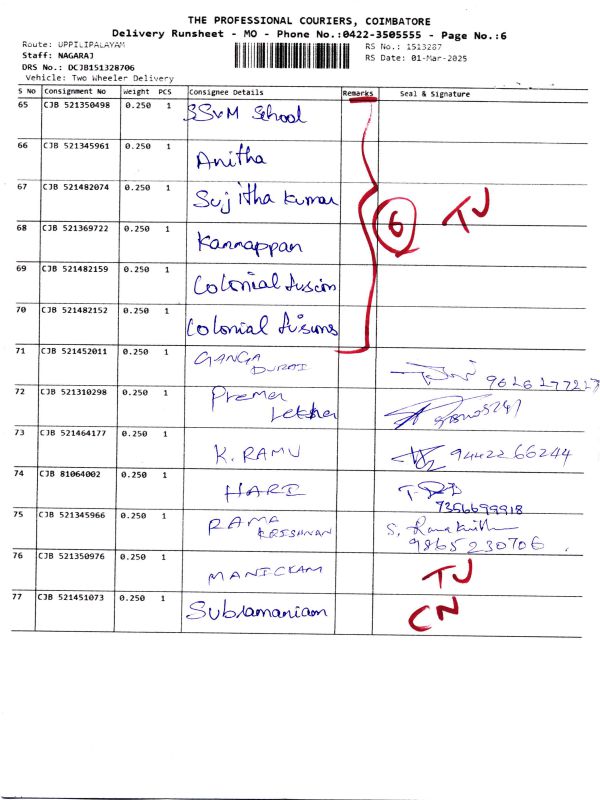 THE PROFESSIONAL COURIERS, COIMBATORE
Delivery Runsheet - MO - Phone No.:0422-3505555 - Page No.:6
Route: UPPILIPALAYAM
RS No.: 1513287
Staff: NAGARAJ
RS Date: 01-Mar-2025
DRS No.: DCJB151328706
Vehicle: Two Wheeler Delivery
S No Consignment No Weight PCS Consignee Details Remarks Seal & Signature
65 CJB 521350498 0.250 1 SSVM School
66 CJB 521345961 0.250 1 Anitha
67 CJB 521482074 0.250 1 Sujitha Kumar
6 TJ
68 CJB 521369722 0.250 1 Kannappan
69 CJB 521482159 0.250 1 Colonial fusion
70 CJB 521482152 0.250 1 Colonial fusions
71 CJB 521452011 0.250 1 GANGA
DURAI
72 CJB 521310298 0.250 1 Prema
Lekha
73 CJB 521464177 0.250 1 K. RAMU 9442266244
74 CJB 81064002 0.250 1 HARI
7356699918
75 CJB 521345966 0.250 1 RAMA
KRISHNAN
9865230706
76 CJB 521350976 0.250 1 MANICKAM TJ
77 CJB 521451073 0.250 1 Subramaniam CN